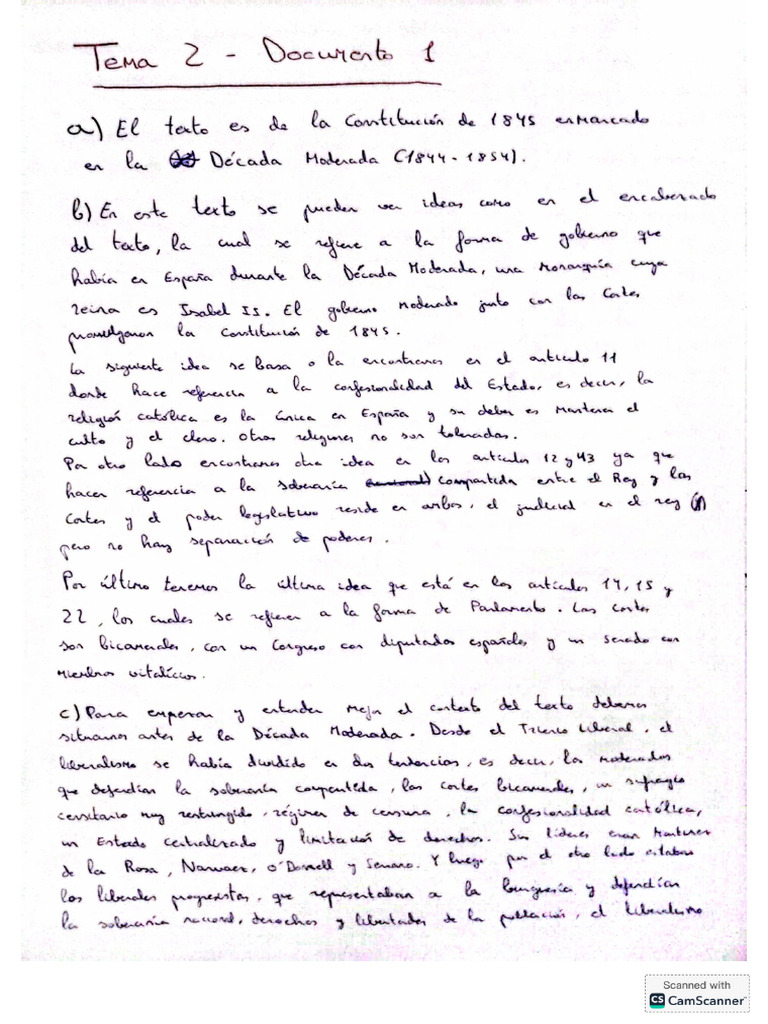 Tema 2 - Documento 1
a) El texto es de la Constitución de 1845 enmarcado
en la Década Moderada (1844-1854).
b) En este texto se pueden ver ideas como en el encabezado
del texto, la cual se refiere a la forma de gobierno que
había en España durante la Década Moderada, una monarquía cuya
reina es Isabel II. El gobierno moderado junto con las Cortes
promulgaron la Constitución de 1845.
La siguiente idea se basa o la encontramos en el artículo 11
donde hace referencia a la confesionalidad del Estado, es decir, la
religión católica es la única en España y su deber es mantener el
culto y el clero. Otras religiones no son toleradas.
Por otro lado encontramos otra idea en los artículos 12 y 43 ya que
hacen referencia a la soberanía compartida entre el Rey y las
Cortes y el poder legislativo reside en ambos, el judicial en el rey
pero no hay separación de poderes.
Por último tenemos la última idea que está en los artículos 14, 15 y
22, los cuales se refieren a la forma de Parlamento. Las cortes
son bicamerales, con un Congreso con diputados españoles y un senado con
miembros vitalicios.
c) Para empezar y entender mejor el contexto del texto debemos
situarnos antes de la Década Moderada. Desde el Trienio Liberal, el
liberalismo se había dividido en dos tendencias, es decir, los moderados
que defendían la soberanía compartida, las cortes bicamerales, un sufragio
censitario muy restringido, régimen de censura, la confesionalidad católica,
un Estado centralizado y limitación de derechos. Sus líderes eran Martínez
de la Rosa, Narváez, O'Donnell y Serrano. Y luego por el otro lado estaban
los liberales progresistas, que representaban a la burguesía y defendían
la soberanía nacional, derechos y libertades de la población, el liberalismo
Scanned with
CS CamScanner